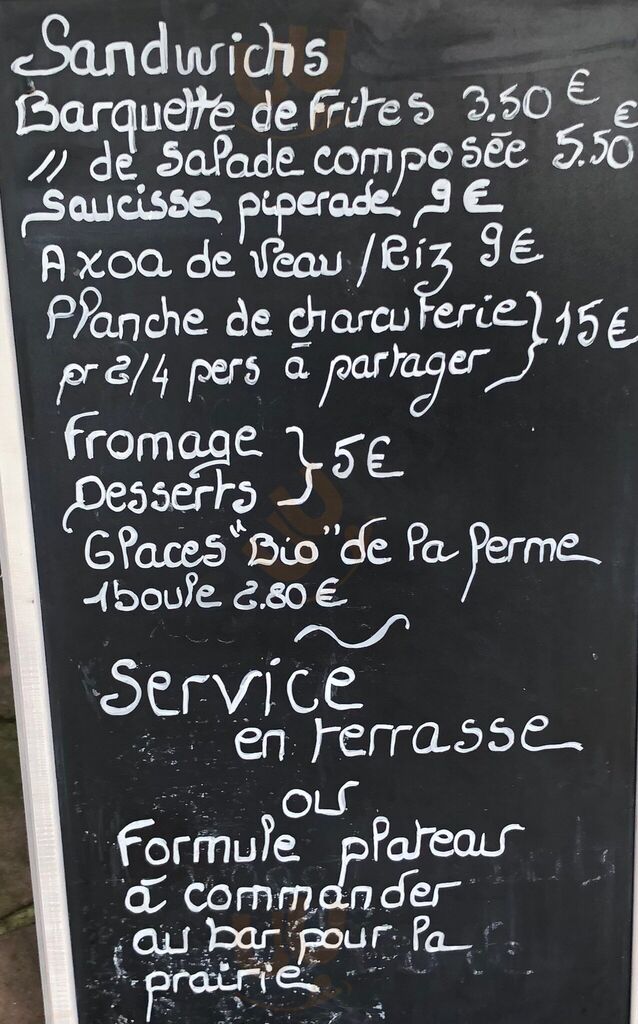 Sandwichs
Barquette de Frites 3.50 €
" de salade composée 5.50 €
saucisse piperade 9 €
Axoa de Veau / Riz 9 €
Planche de charcuterie } 15 €
pr 2/4 pers à partager
Fromage } 5 €
Desserts
Glaces "Bio" de la ferme
1 boule 2.80 €
Service
en terrasse
ou
Formule plateau
à commander
au bar pour la
prairie